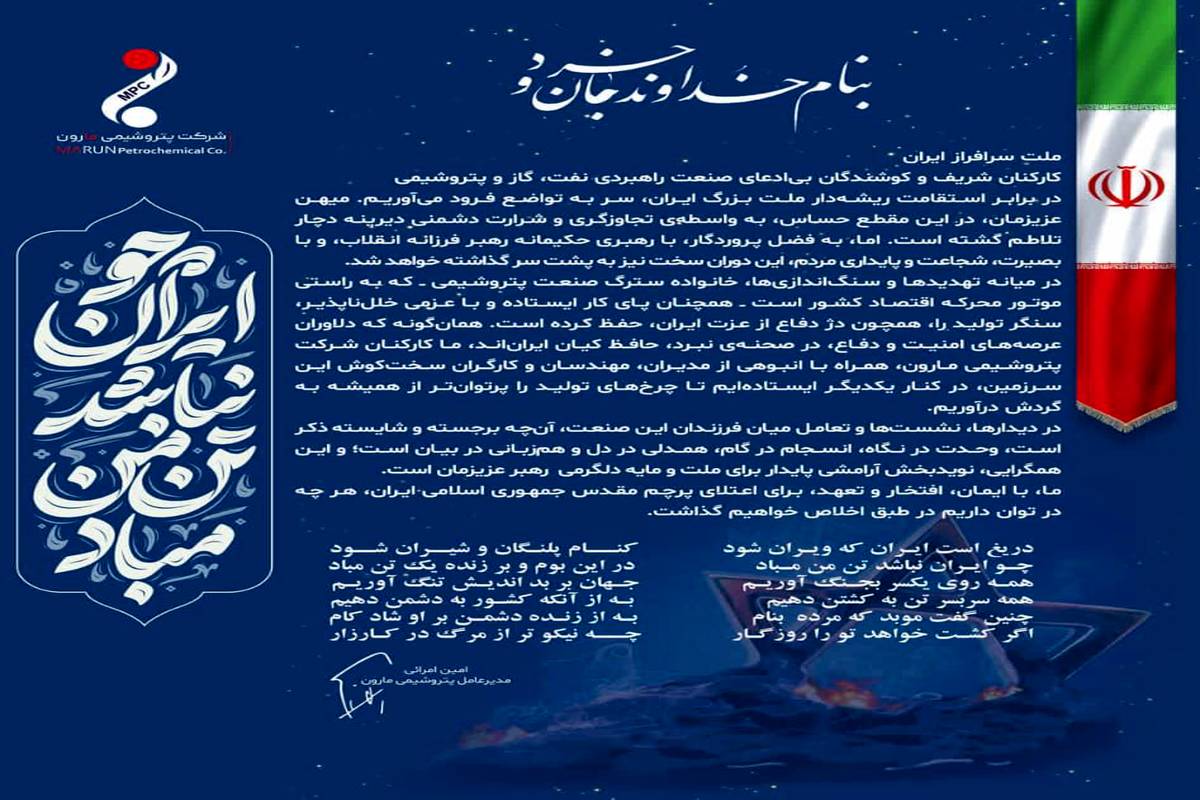 بنام خداوند جان و خرد
MPC
شرکت پتروشیمی مارون
MARUN Petrochemical Co.
ملت سرافراز ایران
کارکنان شریف و کوشندگان بی‌ادعای صنعت راهبردی نفت، گاز و پتروشیمی
در برابر استقامت ریشه‌دار ملت بزرگ ایران، سر به تواضع فرود می‌آوریم. میهن
عزیزمان، در این مقطع حساس، به واسطه‌ی تجاوزگری و شرارت دشمنی دیرینه دچار
تلاطم گشته است. اما، به فضل پروردگار، با رهبری حکیمانه رهبر فرزانه انقلاب، و با
بصیرت، شجاعت و پایداری مردم، این دوران سخت نیز به پشت سر گذاشته خواهد شد.
در میانه تهدیدها و سنگ‌اندازی‌ها، خانواده سترگ صنعت پتروشیمی ـ که به راستی
موتور محرکه اقتصاد کشور است ـ همچنان پای کار ایستاده و با عزمی خلل‌ناپذیر،
سنگر تولید را، همچون دژ دفاع از عزت ایران، حفظ کرده است. همان‌گونه که دلاوران
عرصه‌های امنیت و دفاع، در صحنه‌ی نبرد، حافظ کیان ایران‌اند، ما کارکنان شرکت
پتروشیمی مارون، همراه با انبوهی از مدیران، مهندسان و کارگران سخت‌کوش این
سرزمین، در کنار یکدیگر ایستاده‌ایم تا چرخ‌های تولید را پرتوان‌تر از همیشه به
گردش درآوریم.
در دیدارها، نشست‌ها و تعامل میان فرزندان این صنعت، آن‌چه برجسته و شایسته ذکر
است، وحدت در نگاه، انسجام در گام، همدلی در دل و هم‌زبانی در بیان است؛ و این
همگرایی، نویدبخش آرامشی پایدار برای ملت و مایه دلگرمی رهبر عزیزمان است.
ما، با ایمان، افتخار و تعهد، برای اعتلای پرچم مقدس جمهوری اسلامی ایران، هر چه
در توان داریم در طبق اخلاص خواهیم گذاشت.
دریغ است ایران که ویران شود کنام پلنگان و شیران شود
چو ایران نباشد تن من مباد در این بوم و بر زنده یک تن مباد
همه روی یکسر بجنگ آوریم جهان بر بد اندیش تنگ آوریم
همه سربسر تن به کشتن دهیم به از آنکه کشور به دشمن دهیم
چنین گفت موبد که مرده بنام به از زنده دشمن بر او شاد کام
اگر کشت خواهد تو را روزگار چه نیکو تر از مرگ در کارزار
امین امرائی
مدیرعامل پتروشیمی مارون
چو
ایران
نباشد
تن من
مباد